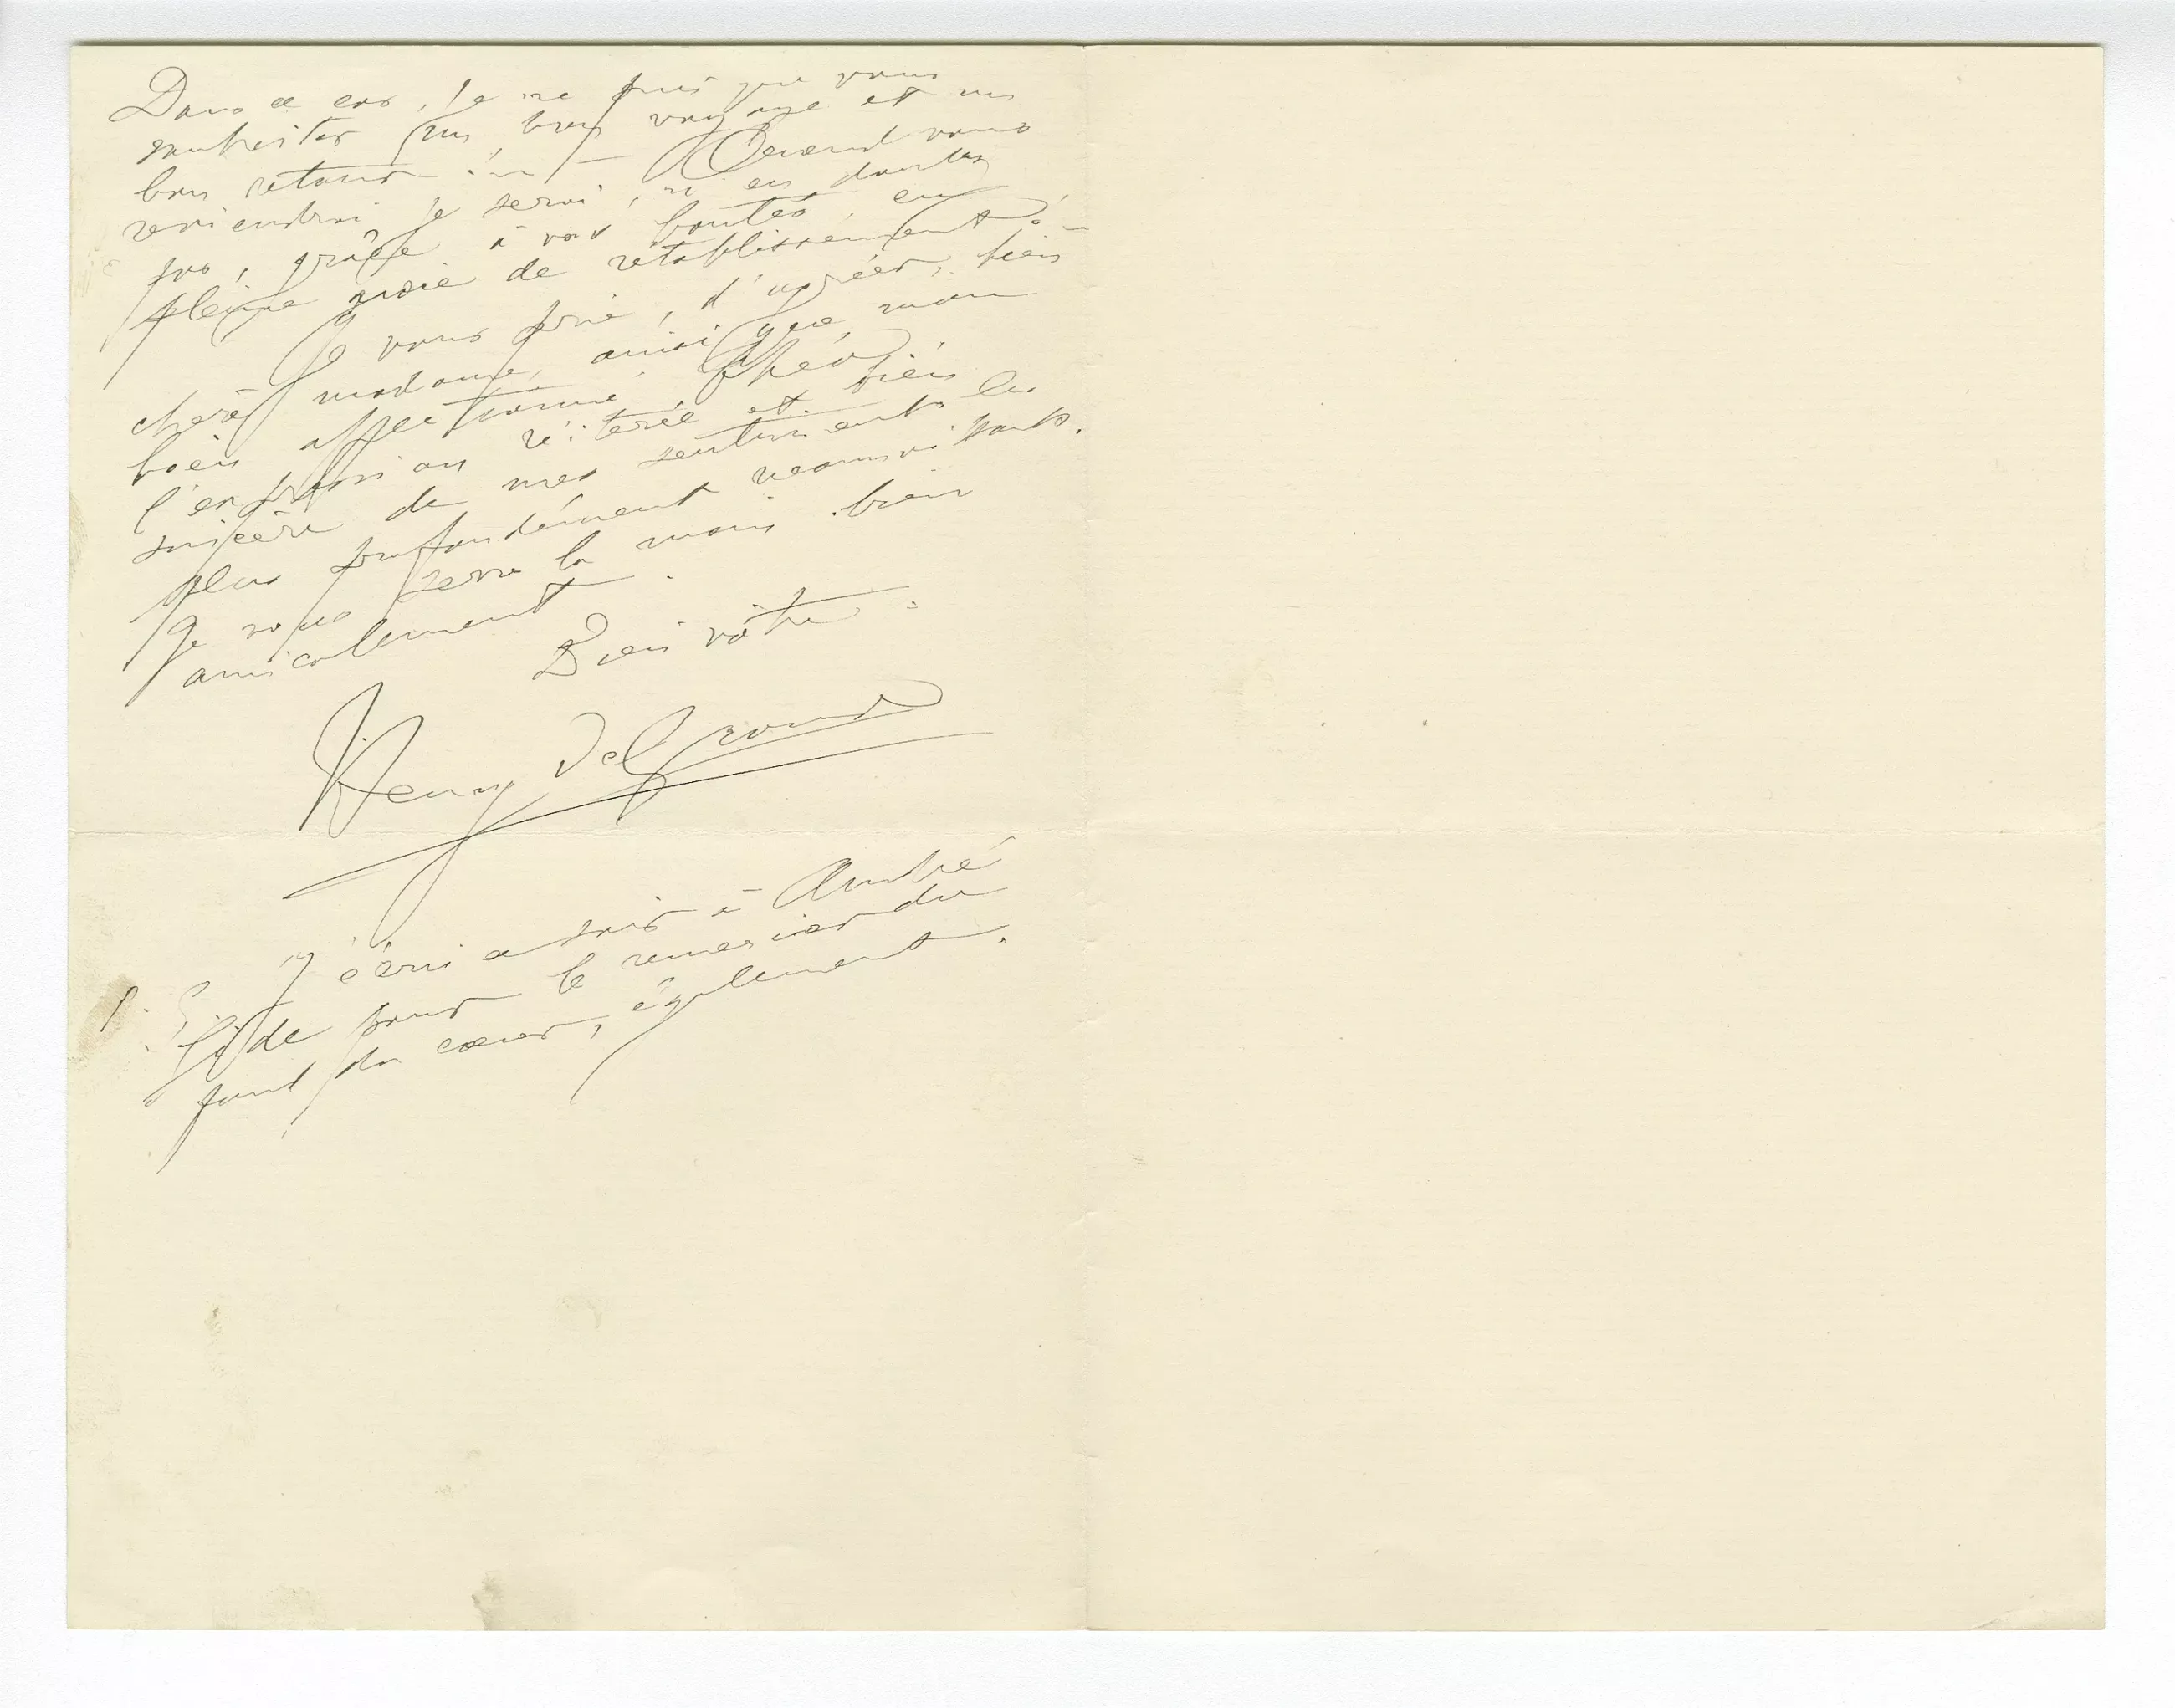 Dans ce cas, je ne puis que vous
souhaiter un bon voyage et un
bon retour ! — Quand vous
reviendrai, je serai, n'en doutez
pas, grâce à vos bontés, en
pleine voie de rétablissement ! —
Je vous prie, d'agréer, bien
chère madame, ainsi que, mon
bien affectionné Théo,
l'expression réitérée et bien
sincère de mes sentiments les
plus profondément reconnaissants.
Je vous serre la main bien
amicalement.
Bien vôtre :
Henry Degroux
P. S. J'écris ce soir à André
Gide pour le remercier du
fond du cœur, également.